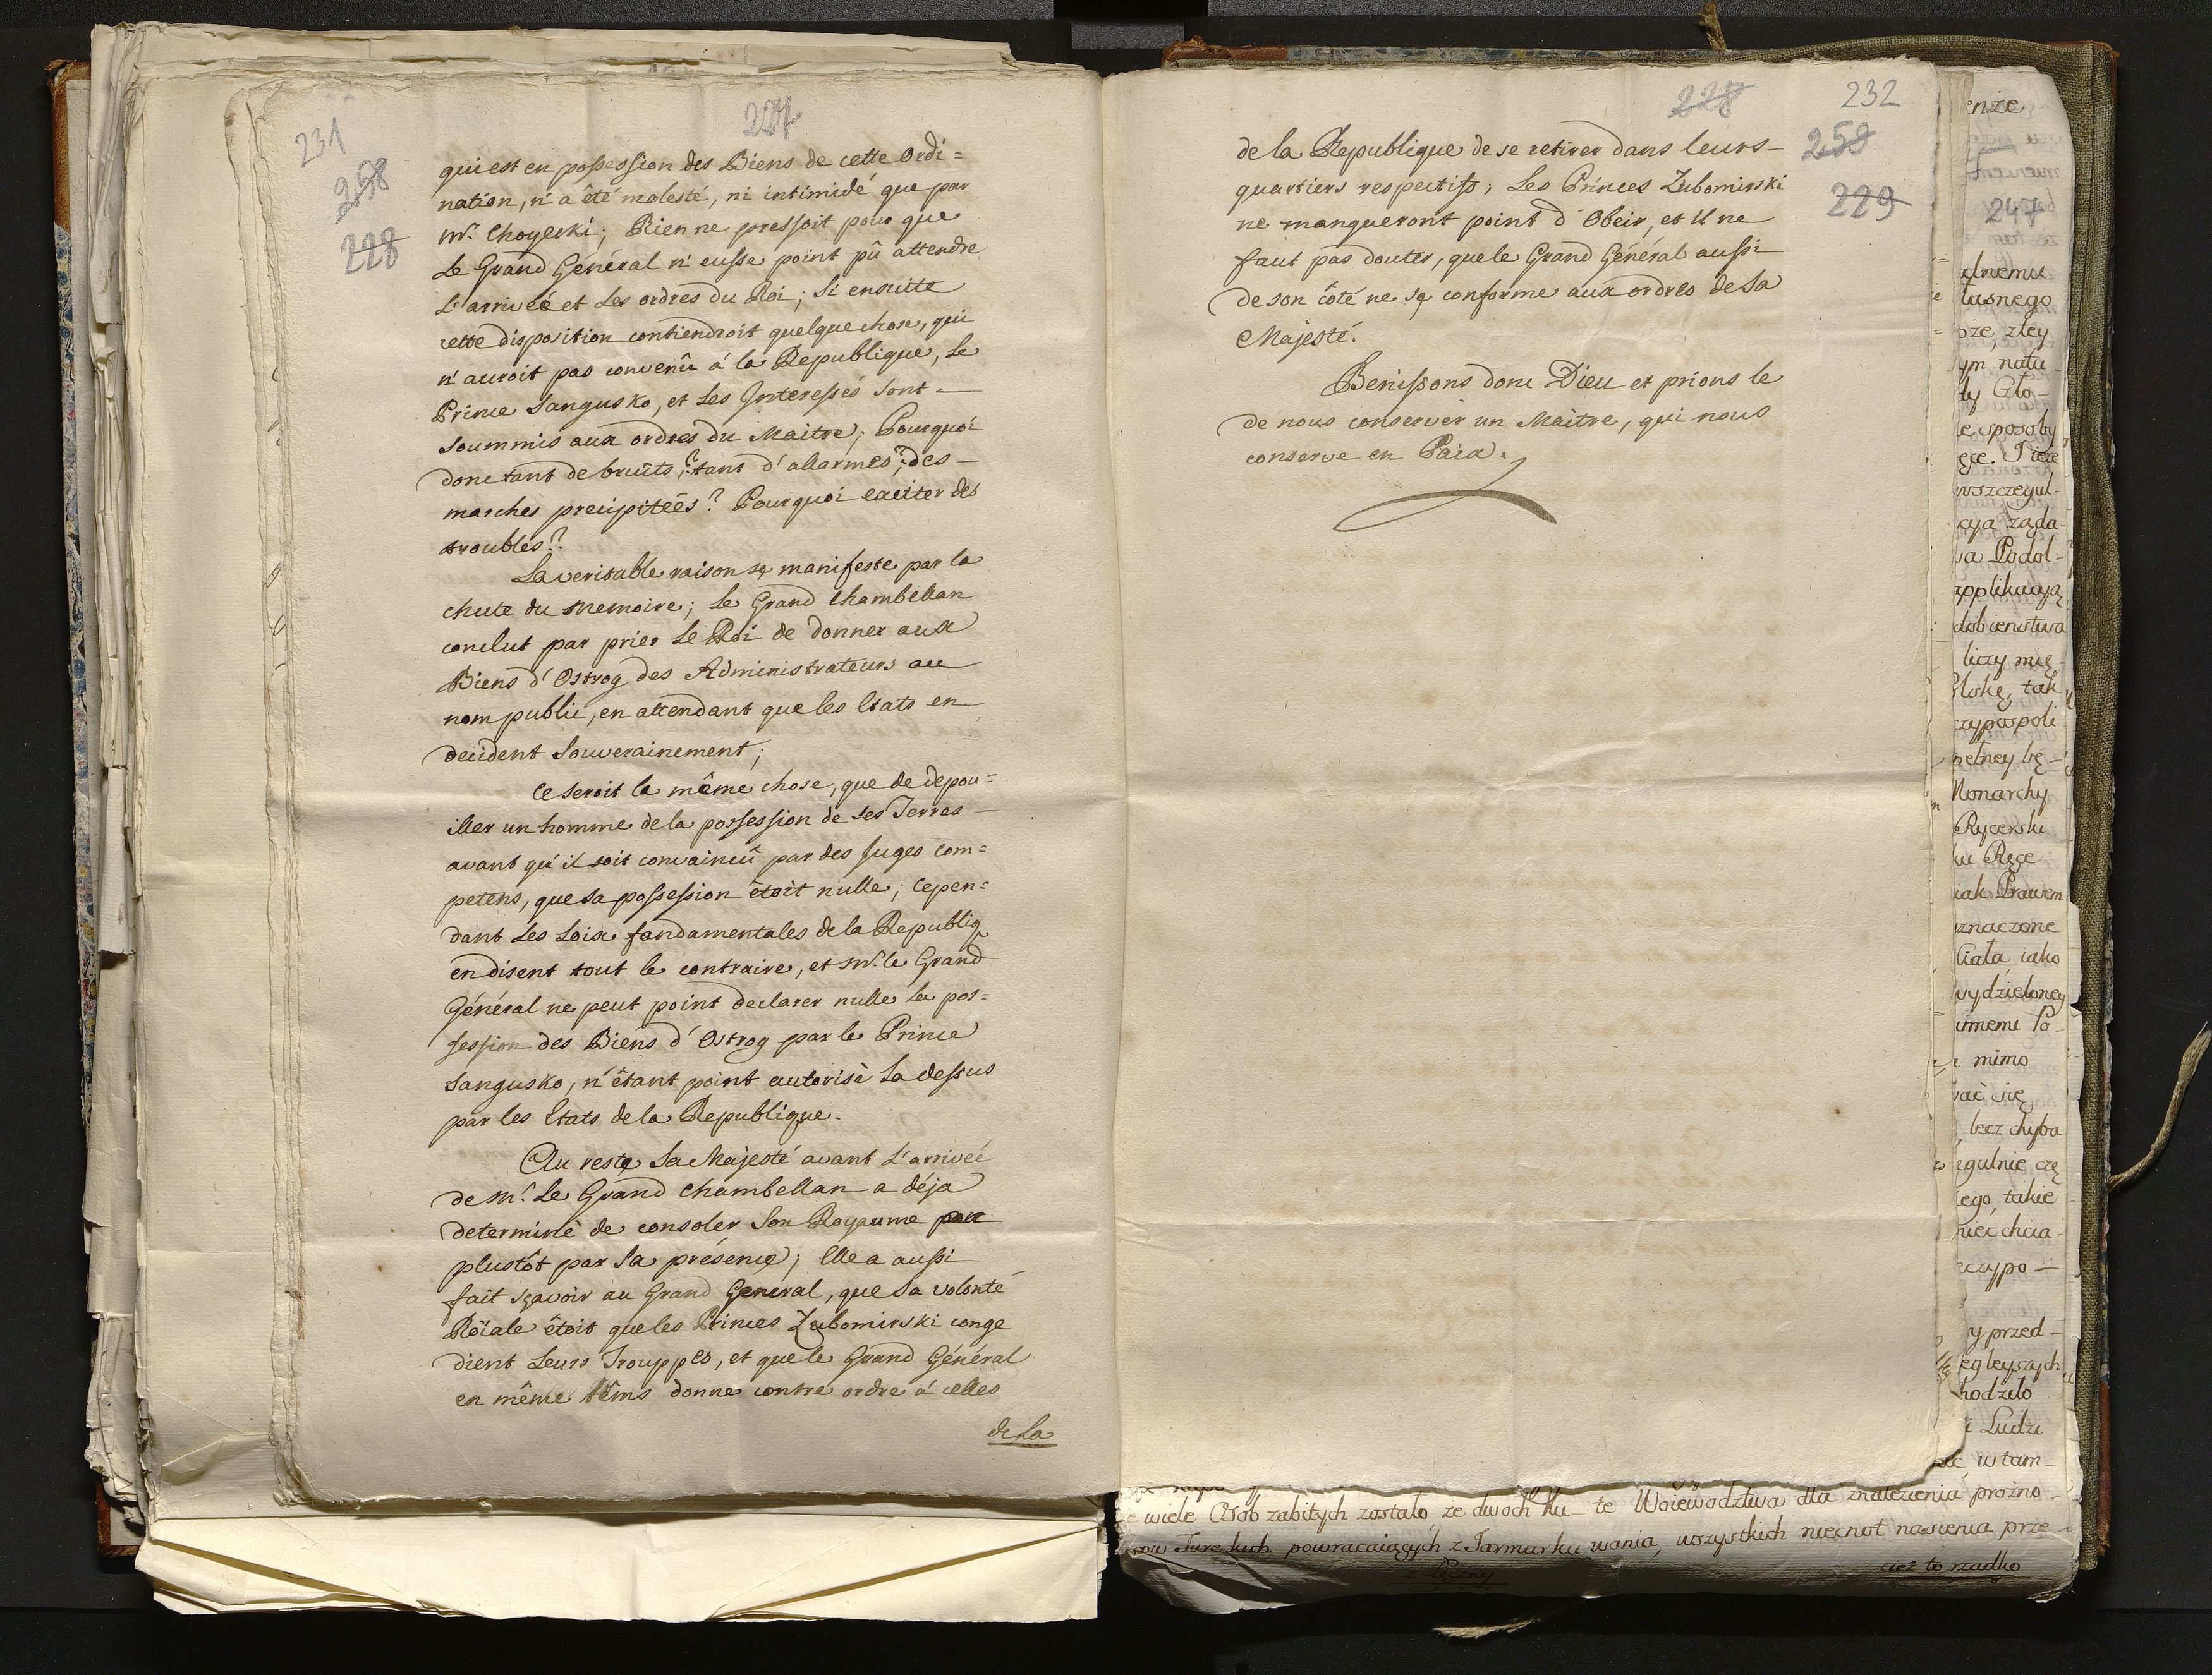 231
227
258
228
qui est en possession des Biens de cette Ordi=
nation, n'a êté molesté, ni intimidé que par
Mr. Choyecki; Rien ne pressoit pour que
Le Grand Général n'eusse point pû attendre
L'arriveé et Les ordres du Roi; Si ensuite
cette disposition contiendroit quelque chose, qui
n'auroit pas convenû á la Republique, Le
Prince Sangusko, et Les Interessés Sont -
Soummis aux ordres du Maitre; Pourquoi
donc tant de bruits,? tant d'allarmes,? des -
marches precipitées? Pourquoi exciter des
troubles?
La veritable raison se manifeste par la
chute du Memoire; Le Grand Chambellan
conclut par prier Le Roi de donner aux
Biens d'Ostrog des Administrateurs au
nom public, en attendant que les Etats en
decident Souverainement;
Ce seroit la même chose, que de depou=
iller un homme de la possession de ses Terres -
avant qu'il soit convaincû par des Juges com=
petens, que sa possession êtoit nulle; Cepen=
dant Les Loix fondamentales de la Republiq
en disent tout le contraire, et Mr. le Grand
Général ne peut point declarer nulle la pos=
session des Biens d'Ostrog par le Prince
Sangusko, n'êtant point autorisè La dessus
par les Etats de la Republique.
Au reste Sa Majesté avant L'arriveé
de Mr. Le Grand Chambellan a déja
determinè de consoler Son Royaume
plustôt par Sa présence; Elle a aussi
fait sçavoir au Grand General, que Sa volonté
Roïale êtoit que les Princes Lubomirski conge
dient Leurs Trouppes, et que le Grand Général
en même têms donne contre ordre á celles
de La
228
232
258
229
de la Republique de se retirer dans leurs -
quartiers respectifs; Les Princes Lubomirski
ne manqueront point d'Obeir, et Il ne
faut pas douter, que le Grand Général aussi
de son côté ne se conforme aux ordres de Sa
Majesté.
Benissons donc Dieu et prions le
de nous conserver un Maitre, qui nous
conserve en Paix.
247
wiele Osób zabitych zostało, że dwóch Ku- te Woiewodztwa dla znalezienia prożno
Tureckich powracaiących z Jarmarku wania, wszystkich niecnot nasienia prze
cież to rzadko